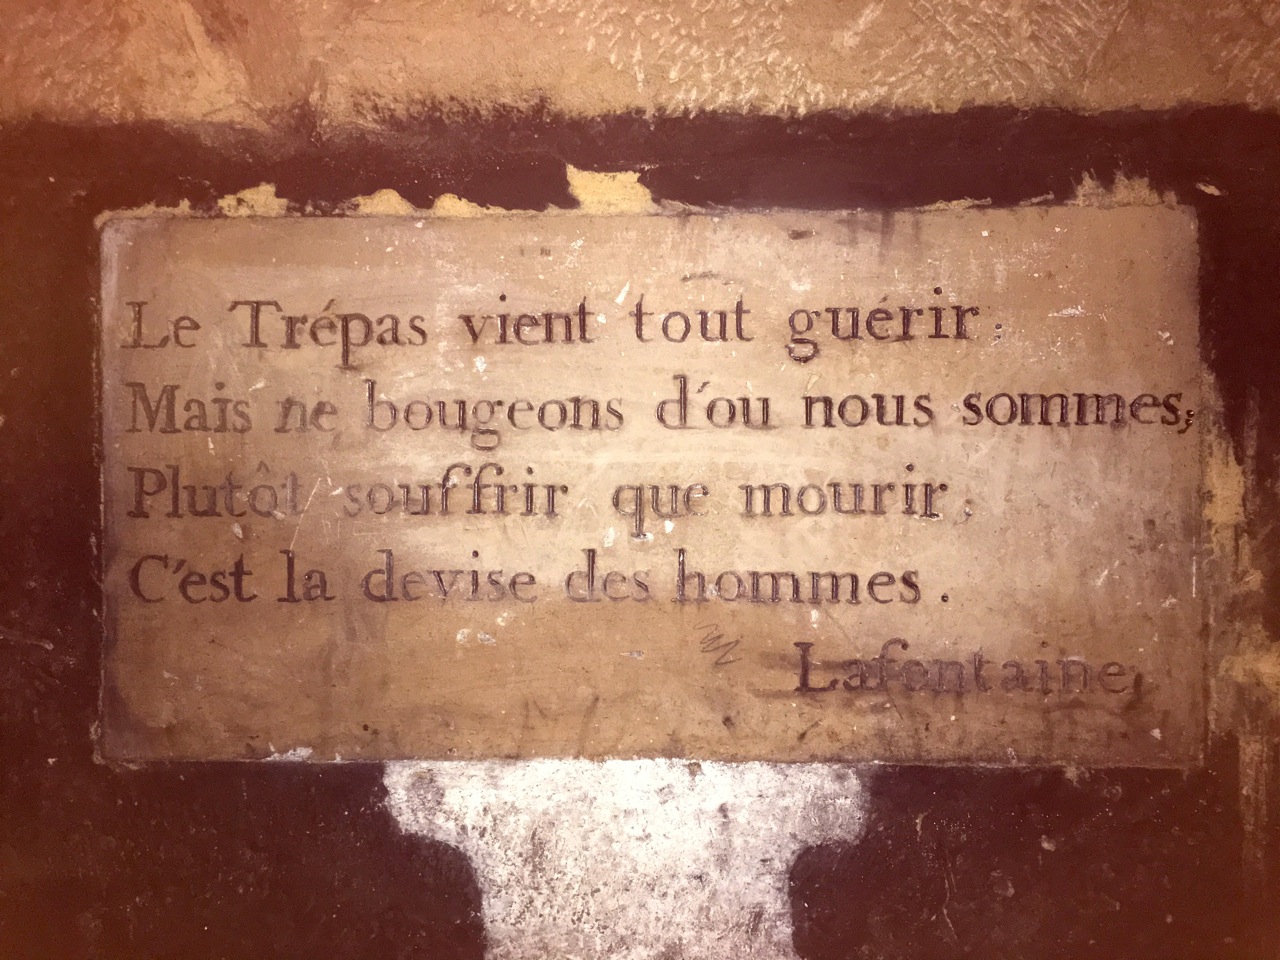 Le Trépas vient tout guérir :
Mais ne bougeons d'ou nous sommes;
Plutôt souffrir que mourir;
C'est la devise des hommes.
Lafontaine